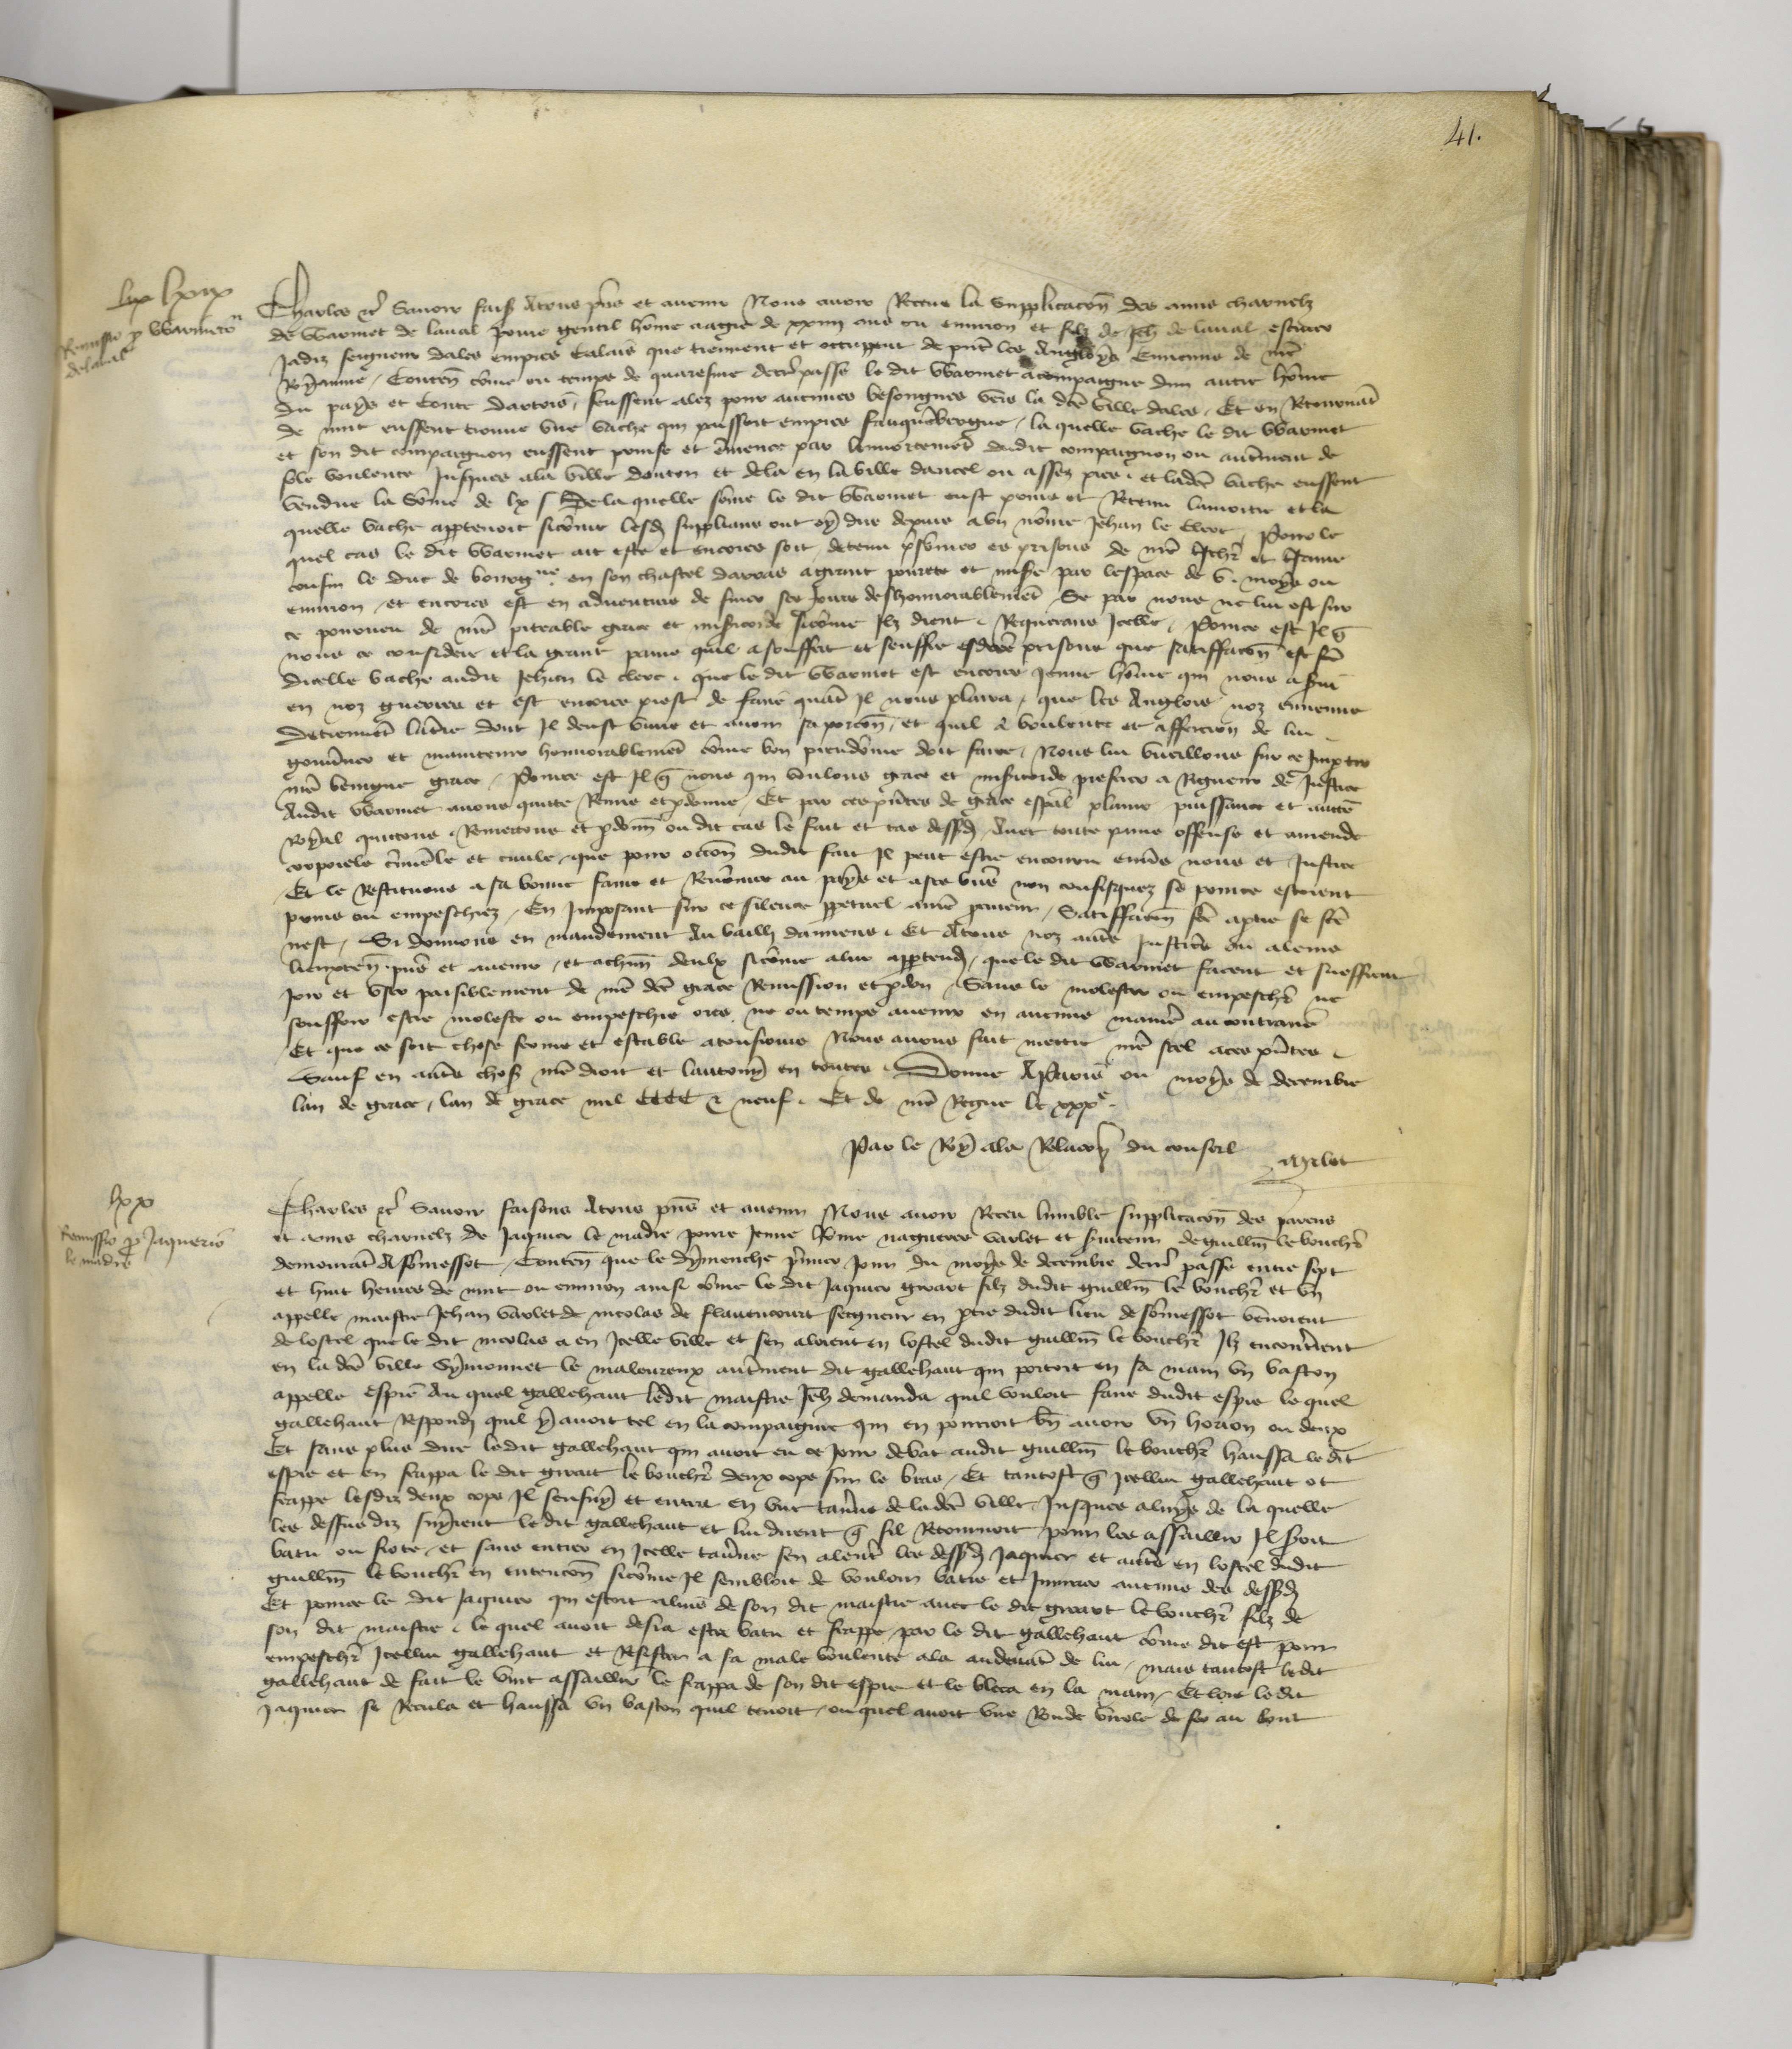 41.
lxix
Remissio p Warmero
de laval
Charles etc Savoir fais Atous pns et avenir Nous avoir Receue la Supplicacon des amis charnelz
de Warmet de laval povre gentil home aagie de xxiiii ans ou environ et filz de Jeh de laval escuier
Jadiz seigneur dales empres Calais que tiennent et occuppent de pnt les Anglois Ennemis de nre
Royaume, Conten come ou temps de quaresme derr passe le dit Warmet acompaigne dun autre home
du pays et Conte dartois, feussent alez pour aucunes besongnes vers la dce ville dales, Et en Retournat
de nuit eussent trouve une vache qui paissoit empres fauquebergue, la quelle vache le dit Warmet
et son dit compaignon eussent prinse et emence par lennortemet dudit compaignon ou autrement de
sole voulente Jusques ala ville douton et dela en la ville dancel ou assez pres, et ladce vache eussent
vendue la some de lx s De la quelle some le dit Warmet eust prins et Retenu lamoitie et la
quelle vache apptenoit sicome lesd supplians ont oy dire depuis a un nome Jehan le Clerc, Pour le
quel cas le dit Warmet ait este et encores soit detenu psonier es prisons de nre tchr et tame
cousin le duc de bourgne en son chastel darras a grant povrete et misere par lespace de v. moys ou
environ, et encores est en adventure de finer ses Jours deshonnorablemet Se par nous ne lui est sur
ce pourveu de nre piteable grace et misicorde sicome Ilz dient, Requerans Icelle, Pource est Il q
nous ce considere et la grant paine quil a souffert et seuffre esdces prisons que satiffacon est fce
dicelle vache audit Jehan le clerc, que le dit Warmet est encores Jeune home qui nous a svi
en noz guerres et est encores prest de faire quat Il nous plaira, que les Anglois noz ennemis
detiennent latre dont Il deust vivre et avoir sa porcon, et quil a voulente et affection de lui
gouvner et maintenir honnorablemet come bon preudome doit faire, Nous lui vueillons sur ce Imptir
nre benigne grace, Pource est Il q nous qui voulons grace et misicorde preferer a Rigueur de Justice
Audit Warmet avons quitte Remis et pdonne, Et par ces pntes de grace espal plaine puissance et aucte
Royal quittons Remettons et pdon ou dit cas le fait et cas dessd, Avec toute paine offense et amende
corporele criminele et civile, que pour occon dudit fait Il peut estre encouru envs nous et Justice
Et le Restituons a sa bonne fame et Renomee au pays et a ses biens non confisquez se pource estoient
prins ou empeschiez, En Imposant sur ce silence ppetuel a nre procureur, Satisffacon fce aptie se fce
nest, Si donnons en mandement Au bailli damiens, Et Atous noz autres Justiciers ou a leurs
lieuxten pns et avenir, et achun deulx sicome alui apptend, que le dit Warmet facent et sueffrent
Joir et user paisiblement de nre dce grace Remission et pdon, Sans le molester ou empeschr ne
souffrir estre moleste ou empeschie ores ne ou temps avenir en aucune maniere au contraire
Et que ce soit chose ferme et estable atousiours Nous avons fait mettre nre scel aces pntes,
Sauf en autres choses nre droit et lautruy en toutes, Donne Aparis ou moys de decembre
lan de grace, lan de grace mil CCCC et neuf, Et de nre Regne le xxxe.
Par le Roy ala Relacon du conseil
lxx
Remissio p Jaquerio
le madre
Charles etc Savoir faisons Atous pns et avenir Nous avoir Receu lumble supplicacon des parens
et amis charnelz de Jaquier le madre povre Jeune home nagueres varlet et serviteur de guillm le bouchr
demourat A somessot, Conten que le dymenche pmier Jour du moys de decembre derr passe entre sept
et huit heures de nuit ou environ ainsi come le dit Jaquier girart filz dudit guillm le bouchr et un
appelle maistre Jehan varlet de nicolas de flavencourt seigneur en ptie dudit lieu de somessot venoient
de lostel que le dit nicolas a en Icelle ville et sen aloient en lostel dudit guillm le bouchr Ilz encontrerent
en la dce ville Symonnet le maleureux autrement dit gallehaut qui portoit en sa main un baston
appelle espie Au quel gallehaut ledit maistre Jeh demanda quil vouloit faire dudit espie le quel
gallehaut Respond quil y avoit tel en la compaignie qui en pourroit bn avoir un horion ou deux
Et sans plus dire ledit gallehaut qui avoit eu ce Jour debat audit guillm le bouchr haussa le dit
espie et en frappa le dit girart le bouchr deux cops sur le bras, Et tantost q Icellui gallehaut ot
frappe lesdiz deux cops, Il senfuy et entra en une tavne de ladce ville, Jusques aluys de la quelle
les dessus diz suyrent ledit gallehaut et lui dirent q sil Retournoit pour les assaillir Il seroit
batu ou frote, et sans entrer en Icelle tavne sen alerent les dessd Jaquier et autres en lostel dudit
guillm le bouchr en entencon sicome Il sembloit de vouloir batre et Injurier aucuns des dessd
Et pource le dit Jaquier qui estoit aluis de son dit maistre avec le dit girart le bouchr filz de
son dit maistre, le quel avoit desia este batu et frappe par le dit gallehaut come dit est pour
empeschr Icellui gallehaut et Resister a sa male voulente ala audevat de lui, mais tantost ledit
gallehaut de fait le vint assaillir le frappa de son dit espie et le bleca en la main, Et lors ledit
Jaquier se Recula et haussa un baston quil tenoit, ouquel avoit une Ronde virole de fer au bout